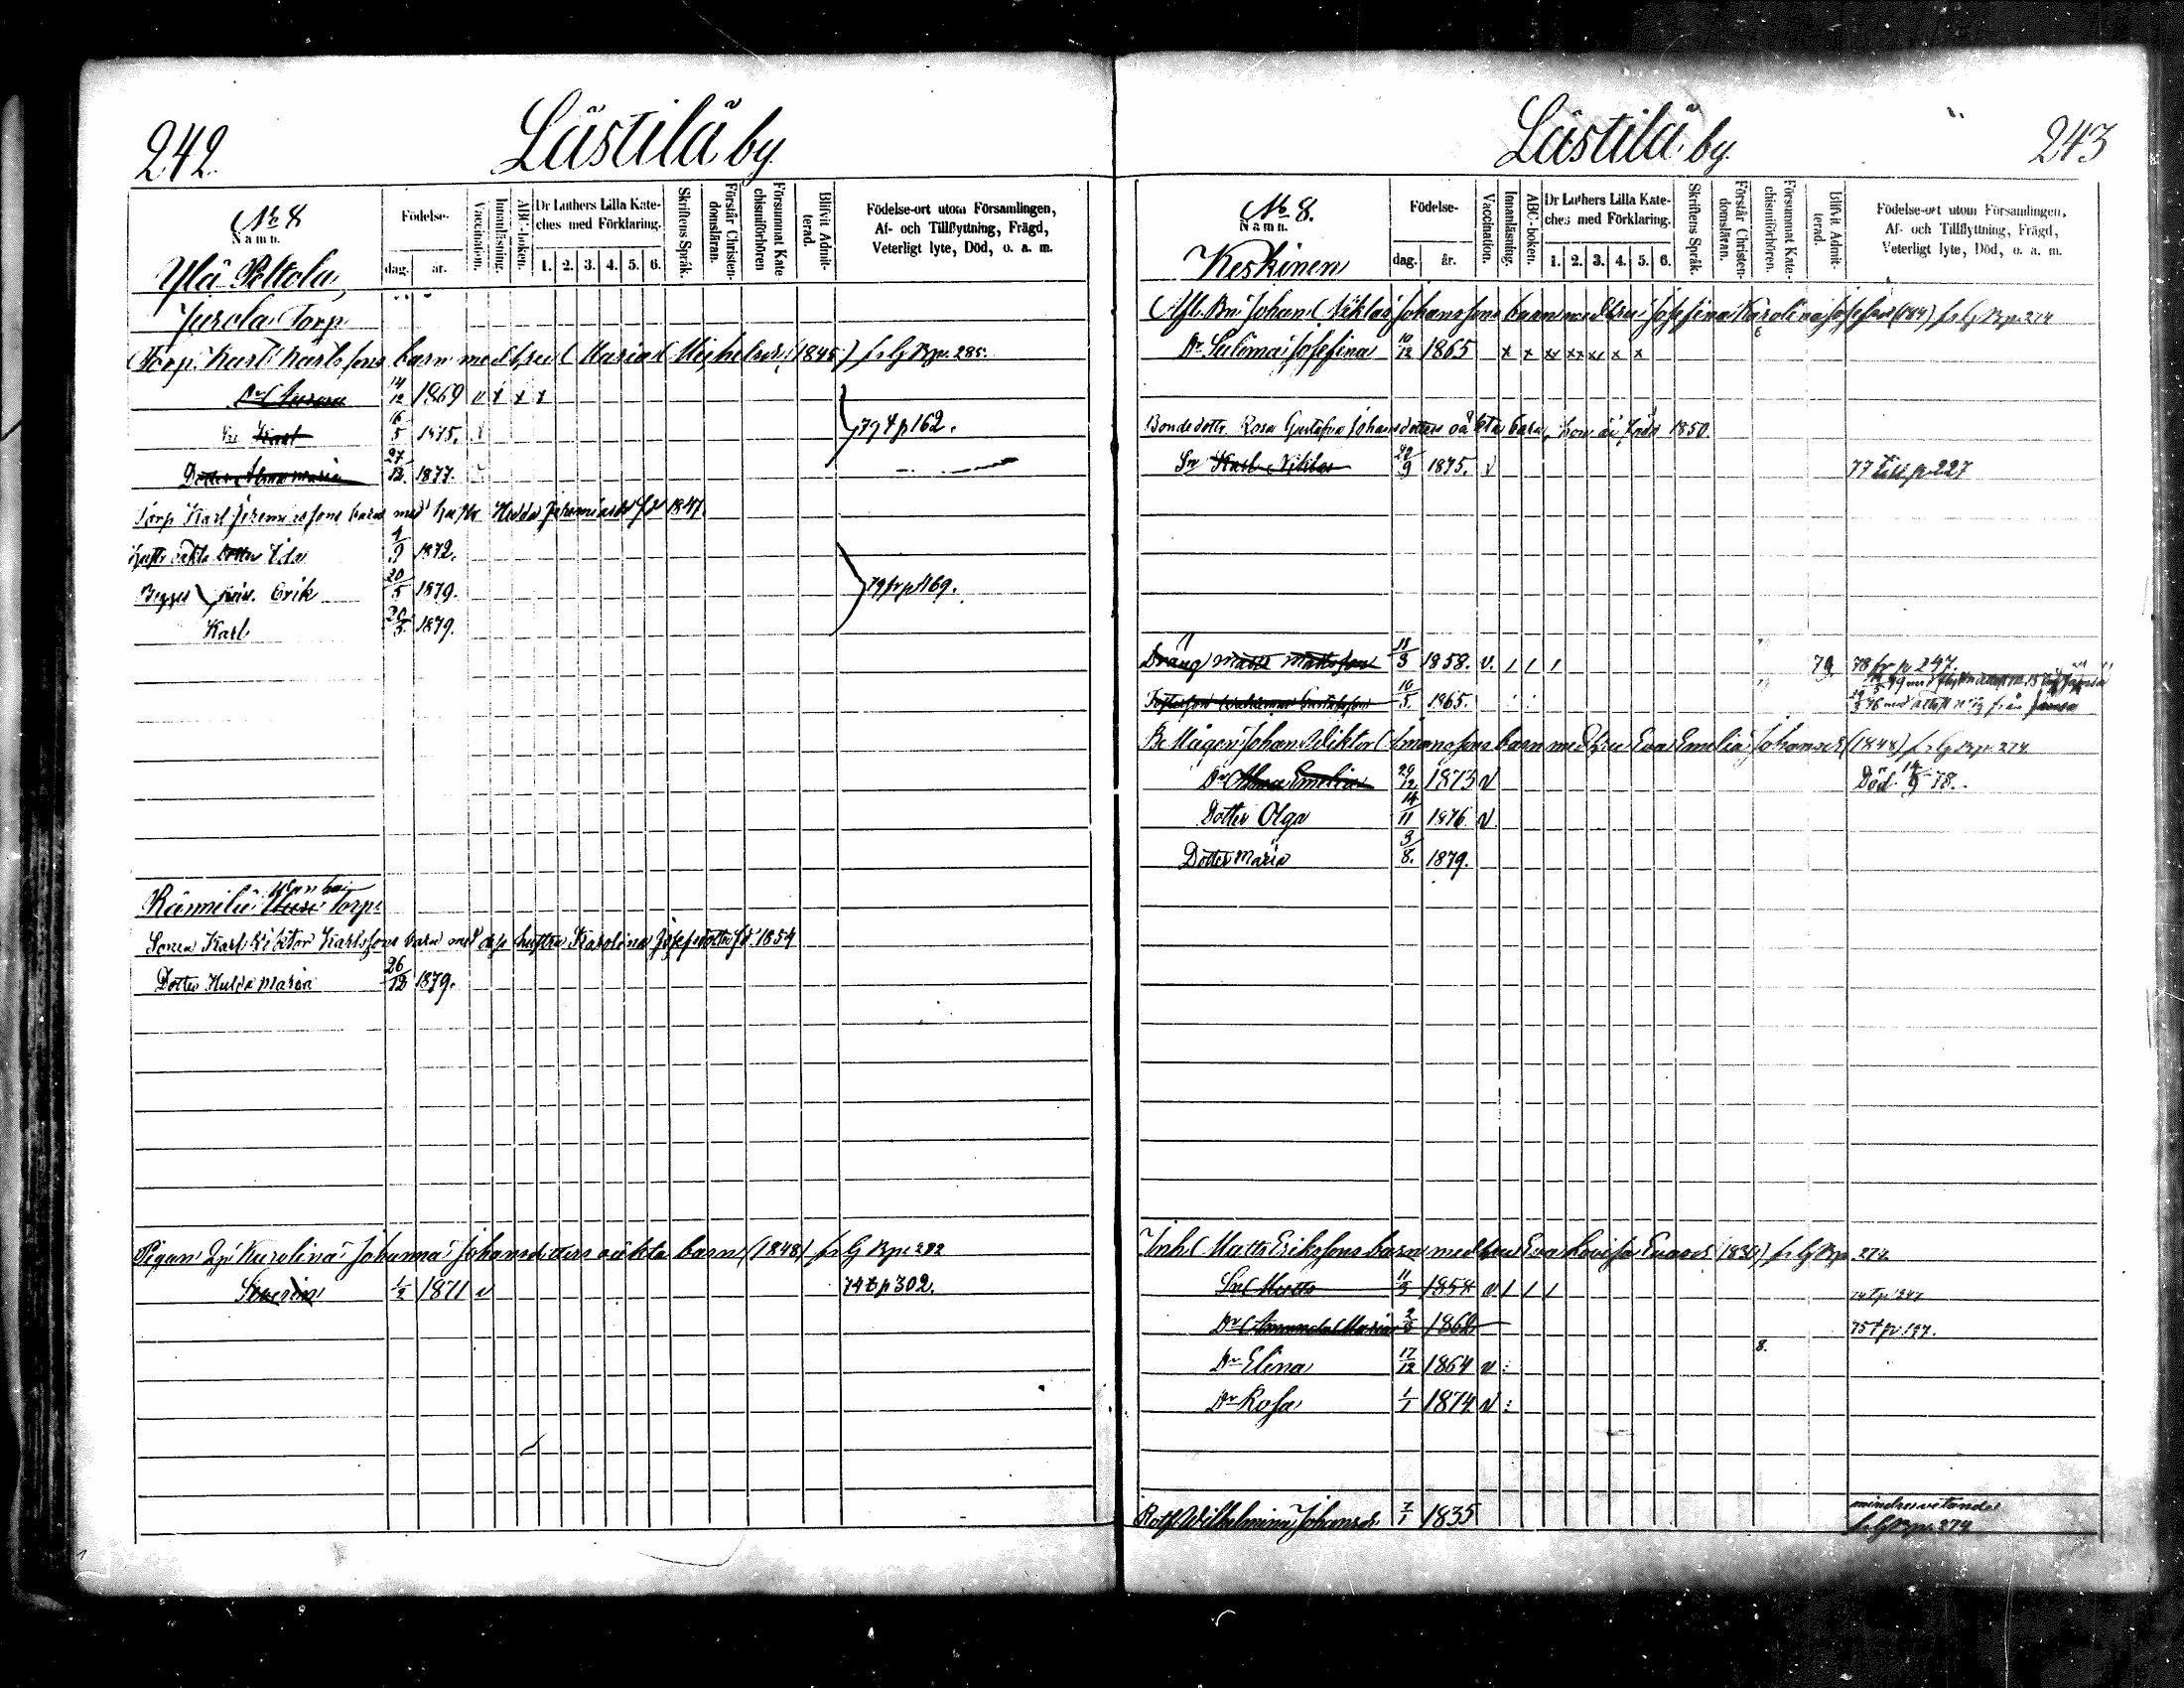 242.
Lästilä by
No 8
Namn.
Födelse-
dag.
år.
Vaccination.
Innanläsning.
ABC-boken.
Dr Luthers Lilla Kate-
ches med Förklaring.
1. 2. 3. 4. 5. 6.
Skriftens Språk.
Förstår Christen-
domsläran.
Försummat Kate
chismiförhören
Blifvit Admit-
terad.
Födelse-ort utom Församlingen,
Af- och Tillflyttning, Frägd,
Veterligt lyte, Död, o. a. m.
Ylä Peltola
Jurola Torp
Torp. Karl Karlssons barn med hru Maria Michelsdr. (1845) fr G Bp. 285.
14/12 1869 v x x x
Sn Karl 16/5 1875. 79 t p 162.
Dotter Alma Maria 27/12 1877.
Torp Karl Jeremiassons barn med hustr Hedda Jeremiasd fd 1847.
Hustr oäkta dotter Ida 4/9 1872.
Begges Erik 20/5 1879. 79 fr p 169.
Karl 20/5 1879.
Rämmilä Torp
Sonen Karl Viktor Karlssons barn med dess hustru Karolina Josefsdotter fd 1854
Dotter Hulda Maria 26/12 1879.
Pigan Karolina Johanna Johansdotters oäkta barn (1848) fr G Bp. 282
Severin 1/2 1871 v 74 t p 302.
Lästilä by.
243
No 8.
Namn.
Födelse-
dag.
år.
Vaccination.
Innanläsning.
ABC-boken.
Dr Luthers Lilla Kate-
ches med Förklaring.
1. 2. 3. 4. 5. 6.
Skriftens Språk.
Förstår Christen-
domsläran.
Försummat Kate-
chismiförhören.
Blifvit Admit-
terad.
Födelse-ort utom Församlingen,
Af- och Tillflyttning, Frägd,
Veterligt lyte, Död, o. a. m.
Keskinen
Afl. Bn. Johan Niklas Johanssons barn med hru Josefina Karolina fr G Bp. 274
Dr Saloma Josefina 10/12 1865 x x xx xx xx x x
Bondedottr. Rosa Gustafva Johansdotters oäkta barn, hon är född 1850.
Sn Karl Niklas 22/9 1875. v 77 till p 227
Dräng Matts Mattsson 11/3 1858. v. / / / 79. 78 fr p 247.
Gustafsson 10/5 1865.
Be Mågen Johan Wiktor Simonssons barn med hru Eva Emelia Johansdr (1848) fr G Bp. 274
Dr Alma Emelia 29/12 1873 v Död 14/9 78.
Dotter Olga 14/11 1876 v
Dotter Maria 3/8. 1879.
Inh. Matts Erikssons barn med hru Eva Lovisa (1830) fr G Bp. 274.
Sn Matts 11/3 1858 v / / / 78 t p 247
Dr Amanda Maria 2/8 1862 75 t p 197.
8.
Dr Elina 17/12 1864 v :
Dr Rosa 1/1 1874 v :
Wilhelmina Johansdr. 7/1 1835 mindre vetande
fr G Bp. 274